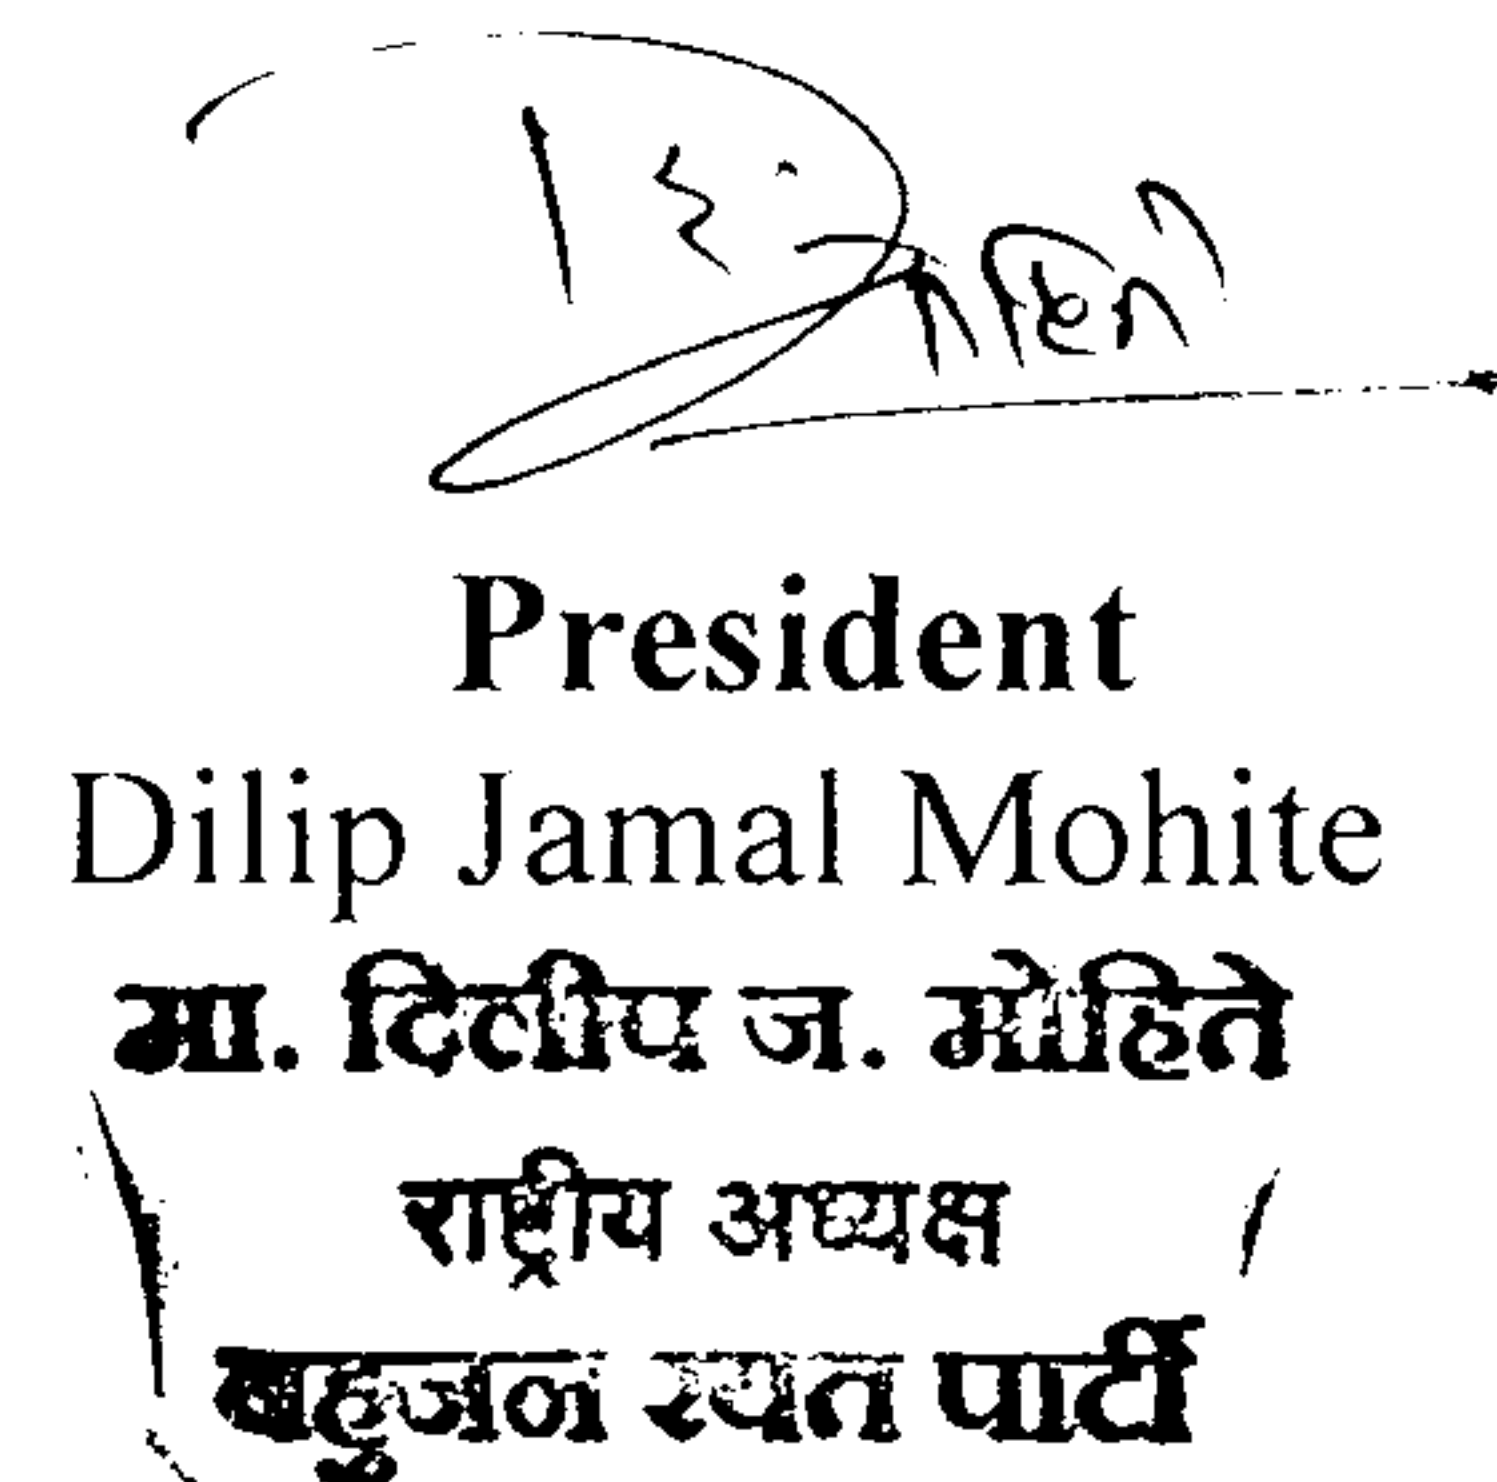 President
Dilip Jamal Mohite
मा. दिलीप ज. मोहिते
राष्ट्रीय अध्यक्ष
बहुजन रयत पार्टी